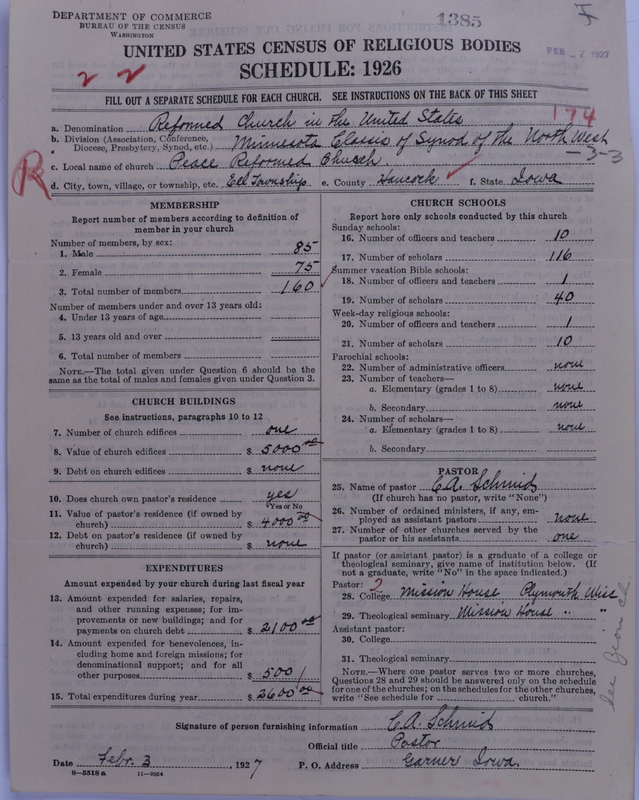 DEPARTMENT OF COMMERCE
BUREAU OF THE CENSUS
WASHINGTON
1385
FEB -7 1927
UNITED STATES CENSUS OF RELIGIOUS BODIES
SCHEDULE: 1926
2 2
FILL OUT A SEPARATE SCHEDULE FOR EACH CHURCH. SEE INSTRUCTIONS ON THE BACK OF THIS SHEET
174
a. Denomination Reformed Church in the United States
b. Division (Association, Conference, Diocese, Presbytery, Synod, etc.) Minnesota Classis of Synod of the North West
-3-3
c. Local name of church Peace Reformed Church
R
d. City, town, village, or township, etc. Ell Township e. County Hancock f. State Iowa
MEMBERSHIP
Report number of members according to definition of
member in your church
Number of members, by sex:
1. Male 85
2. Female 75
3. Total number of members 160
Number of members under and over 13 years old:
4. Under 13 years of age
5. 13 years old and over
6. Total number of members
NOTE.—The total given under Question 6 should be the
same as the total of males and females given under Question 3.
CHURCH BUILDINGS
See instructions, paragraphs 10 to 12
7. Number of church edifices one
8. Value of church edifices $ 5000 00
9. Debt on church edifices $ none
10. Does church own pastor's residence yes
Yes or No
11. Value of pastor's residence (if owned by
church) $ 4000 00
12. Debt on pastor's residence (if owned by
church) $ none
EXPENDITURES
Amount expended by your church during last fiscal year
13. Amount expended for salaries, repairs,
and other running expenses; for im-
provements or new buildings; and for
payments on church debt $ 2100 00
14. Amount expended for benevolences,
including home and foreign missions; for
denominational support; and for all
other purposes $ 500
15. Total expenditures during year $ 2600 00
CHURCH SCHOOLS
Report here only schools conducted by this church
Sunday schools:
16. Number of officers and teachers 10
17. Number of scholars 116
Summer vacation Bible schools:
18. Number of officers and teachers 1
19. Number of scholars 40
Week-day religious schools:
20. Number of officers and teachers 1
21. Number of scholars 10
Parochial schools:
22. Number of administrative officers none
23. Number of teachers—
a. Elementary (grades 1 to 8) none
b. Secondary none
24. Number of scholars—
a. Elementary (grades 1 to 8) none
b. Secondary
PASTOR
25. Name of pastor C.A. Schmid
(If church has no pastor, write "None")
26. Number of ordained ministers, if any, em-
ployed as assistant pastors none
27. Number of other churches served by the
pastor or his assistants one
If pastor (or assistant pastor) is a graduate of a college or
theological seminary, give name of institution below. (If
not a graduate, write "No" in the space indicated.)
Pastor: 2
28. College Mission House Plymouth Wisc
29. Theological seminary Mission House " "
Assistant pastor:
30. College
31. Theological seminary
NOTE.—Where one pastor serves two or more churches,
Questions 28 and 29 should be answered only on the schedule
for one of the churches; on the schedules for the other churches,
write "See schedule for ........ church."
see Zion ch
Signature of person furnishing information C.A. Schmid
Official title Pastor
Date Febr. 3, 1927 P. O. Address Garner Iowa.
8—5518 a 11—9054